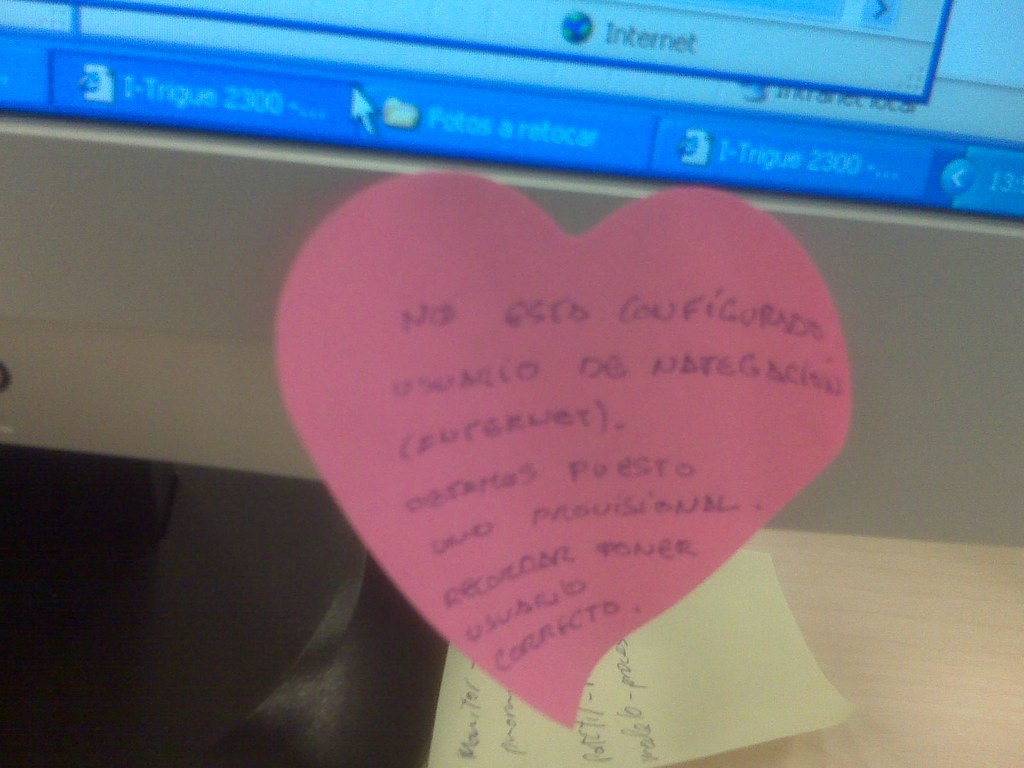 Internet
Intranet local
I-Trigue 2300 -...
Fotos a retocar
I-Trigue 2300 -...
NO ESTO CONFIGURADO
USUARIO DE NAVEGACIÓN
(INTERNET).
DEJAMOS PUESTO
UNO PROVISIONAL.
RECORDAR PONER
USUARIO
CORRECTO.
Monitor -
portátil -
modelo - proces